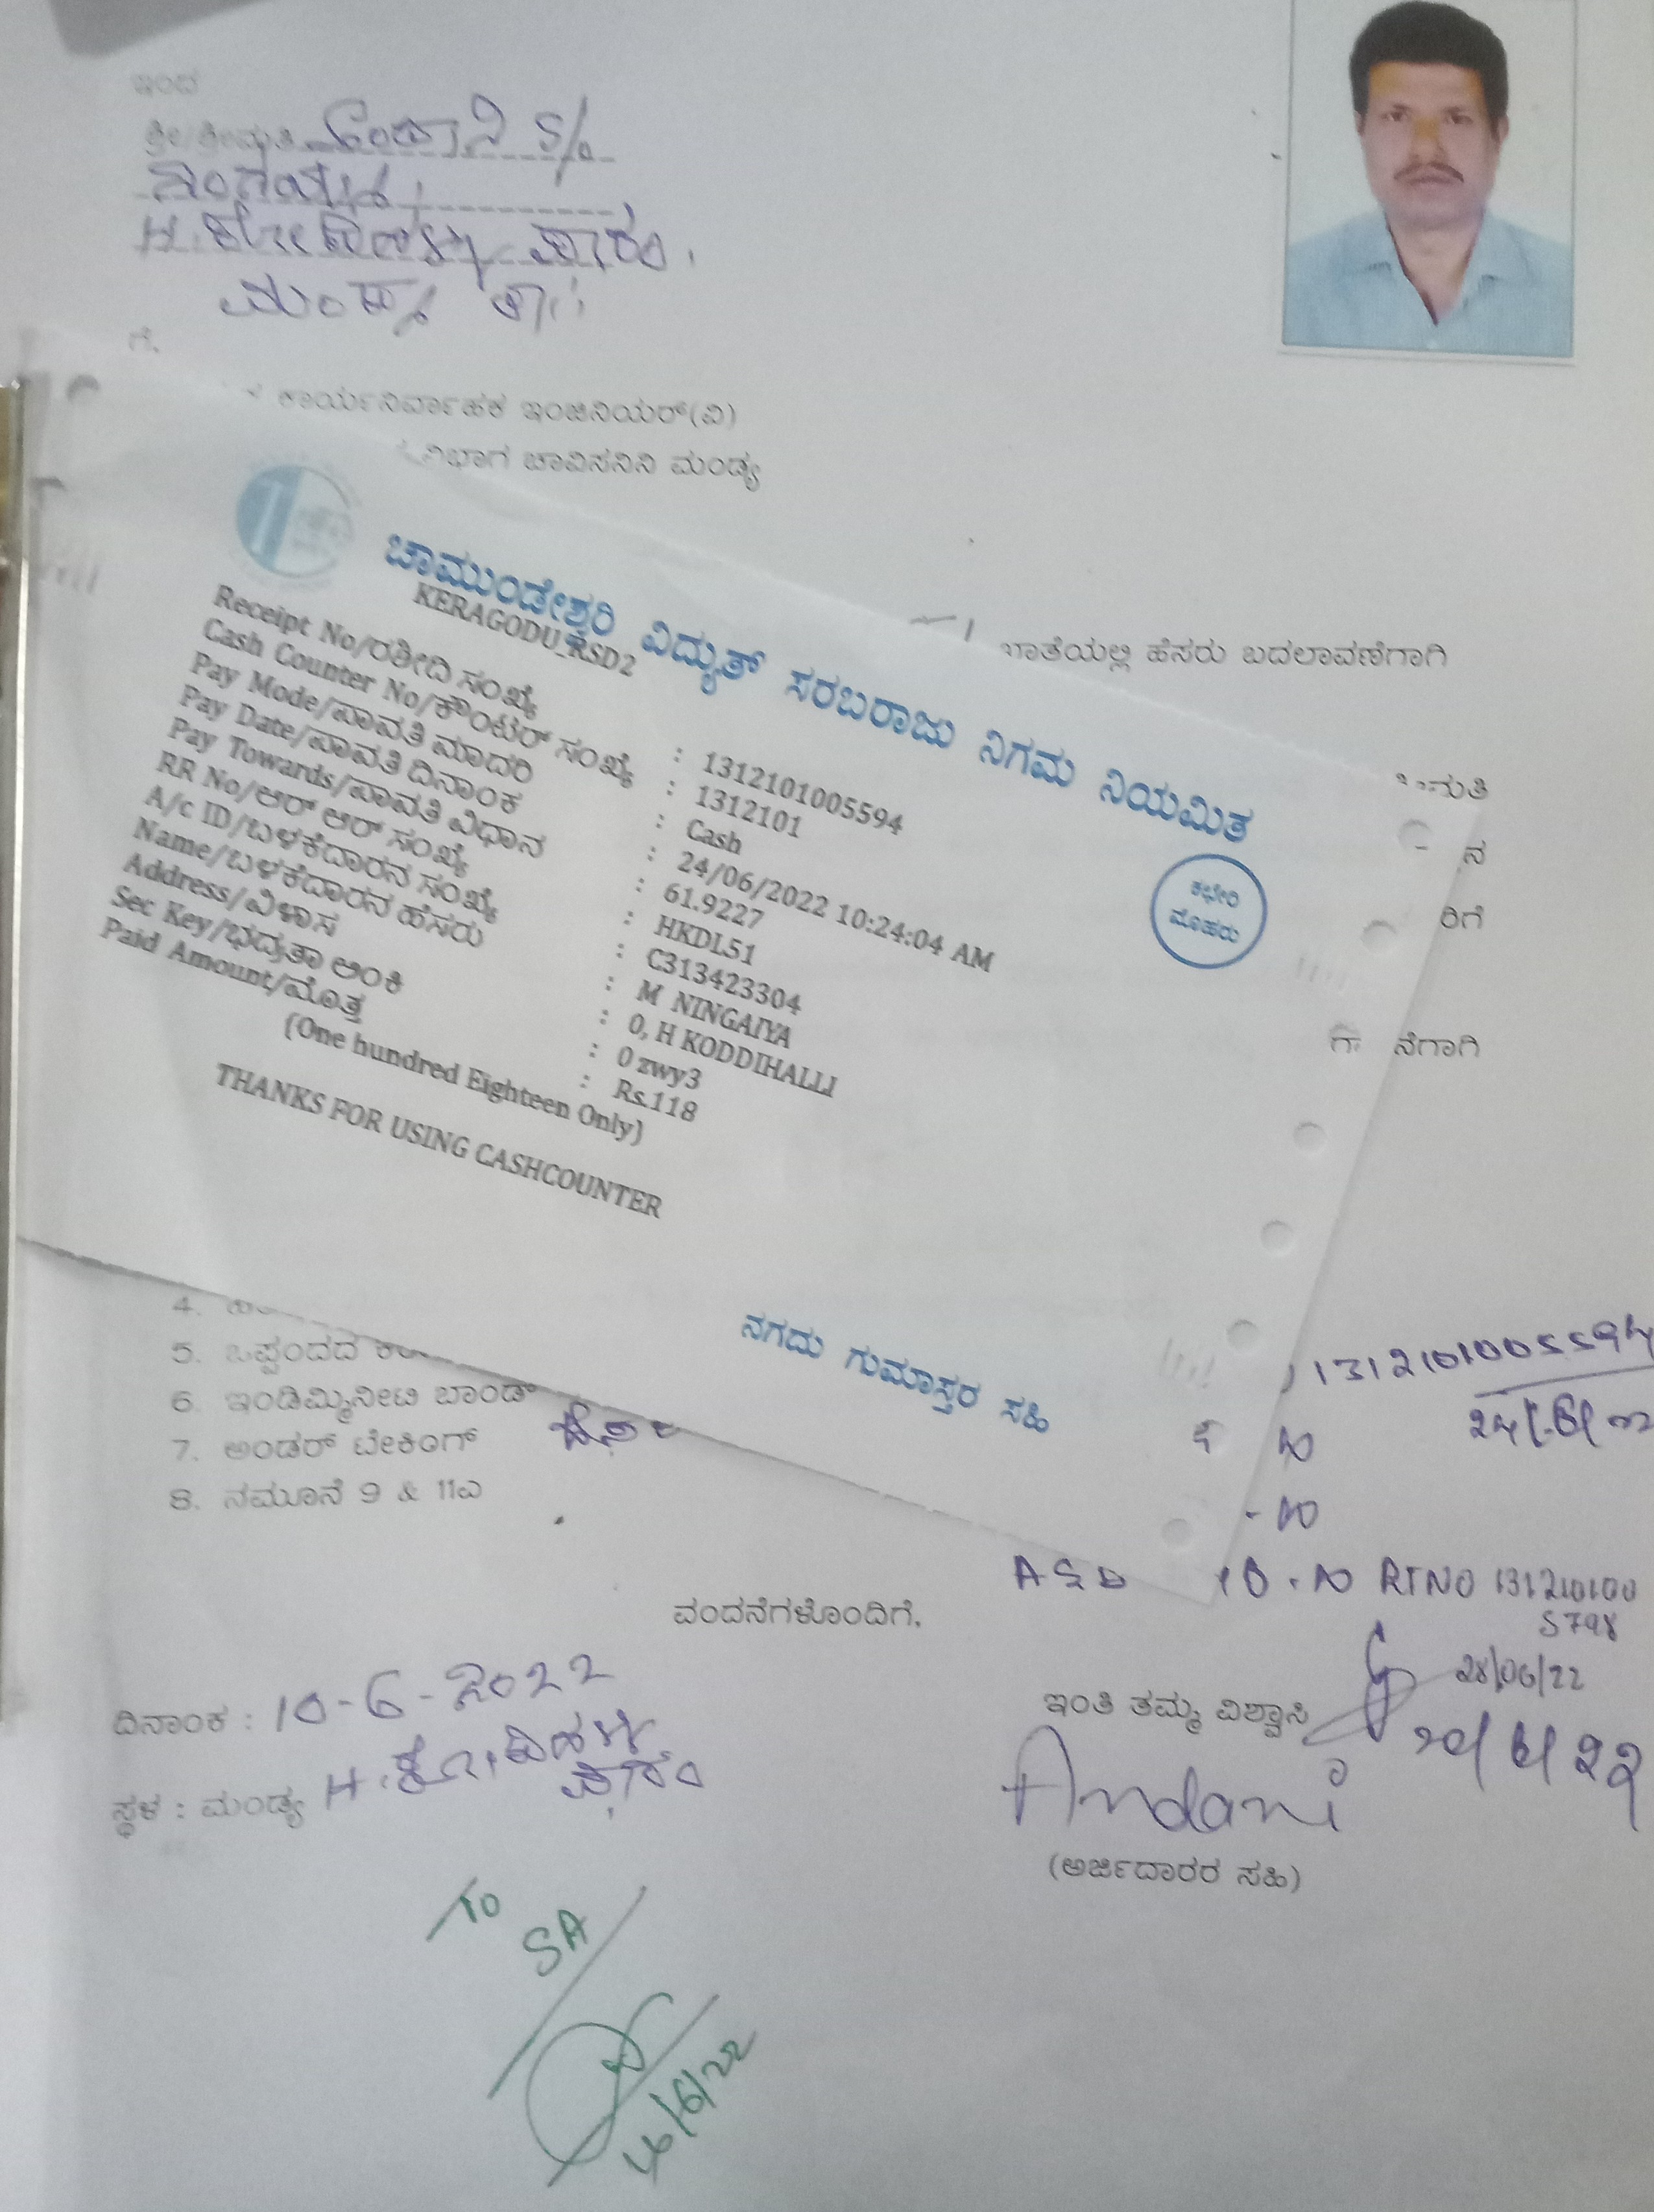 ಇಂದ
ಶ್ರೀ/ಶ್ರೀಮತಿ ಅಂದಾನಿ S/o
ನಿಂಗಯ್ಯ,
H. ಕೋಡಿಹಳ್ಳಿ ಗ್ರಾಮ,
ಮಂಡ್ಯ ತಾ||
ಗೆ.
ಕಾರ್ಯನಿರ್ವಾಹಕ ಇಂಜಿನಿಯರ್(ವಿ)
ವಿಭಾಗ ಚಾವಿಸನಿನಿ ಮಂಡ್ಯ
ಖಾತೆಯಲ್ಲಿ ಹೆಸರು ಬದಲಾವಣೆಗಾಗಿ
ಚಾಮುಂಡೇಶ್ವರಿ ವಿದ್ಯುತ್ ಸರಬರಾಜು ನಿಗಮ ನಿಯಮಿತ
KERAGODU_RSD2
Receipt No/ರಶೀದಿ ಸಂಖ್ಯೆ : 1312101005594
Cash Counter No/ಕೌಂಟರ್ ಸಂಖ್ಯೆ : 1312101
Pay Mode/ಪಾವತಿ ಮಾದರಿ : Cash
Pay Date/ಪಾವತಿ ದಿನಾಂಕ : 24/06/2022 10:24:04 AM
Pay Towards/ಪಾವತಿ ವಿಧಾನ : 61.9227
RR No/ಆರ್ ಆರ್ ಸಂಖ್ಯೆ : HKDL51
A/c ID/ಬಳಕೆದಾರನ ಸಂಖ್ಯೆ : C313423304
Name/ಬಳಕೆದಾರನ ಹೆಸರು : M NINGAIYA
Address/ವಿಳಾಸ : 0, H KODDIHALLI
Sec Key/ಭದ್ರತಾ ಅಂಕಿ : 0 zwy3
Paid Amount/ಮೊತ್ತ : Rs.118
(One hundred Eighteen Only)
THANKS FOR USING CASHCOUNTER
ಕಛೇರಿ
ಮೊಹರು
ನಗದು ಗುಮಾಸ್ತರ ಸಹಿ
ನ
ರಿಗೆ
ನೆಗಾಗಿ
4.
5. ಒಪ್ಪಂದದ
6. ಇಂಡಿಮ್ನಿನೀಟಿ ಬಾಂಡ್
7. ಅಂಡರ್ ಟೇಕಿಂಗ್
8. ನಮೂನೆ 9 & 11ಎ
1312101005594
24/6/22
ASD 10.00 RTNO 131210100
5798
28/06/22
ವಂದನೆಗಳೊಂದಿಗೆ.
ದಿನಾಂಕ : 10-6-2022
ಸ್ಥಳ : ಮಂಡ್ಯ H. ಕೋಡಿಹಳ್ಳಿ
ಗ್ರಾಮ
ಇಂತಿ ತಮ್ಮ ವಿಶ್ವಾಸಿ
Andani
(ಅರ್ಜಿದಾರರ ಸಹಿ)
To
SA